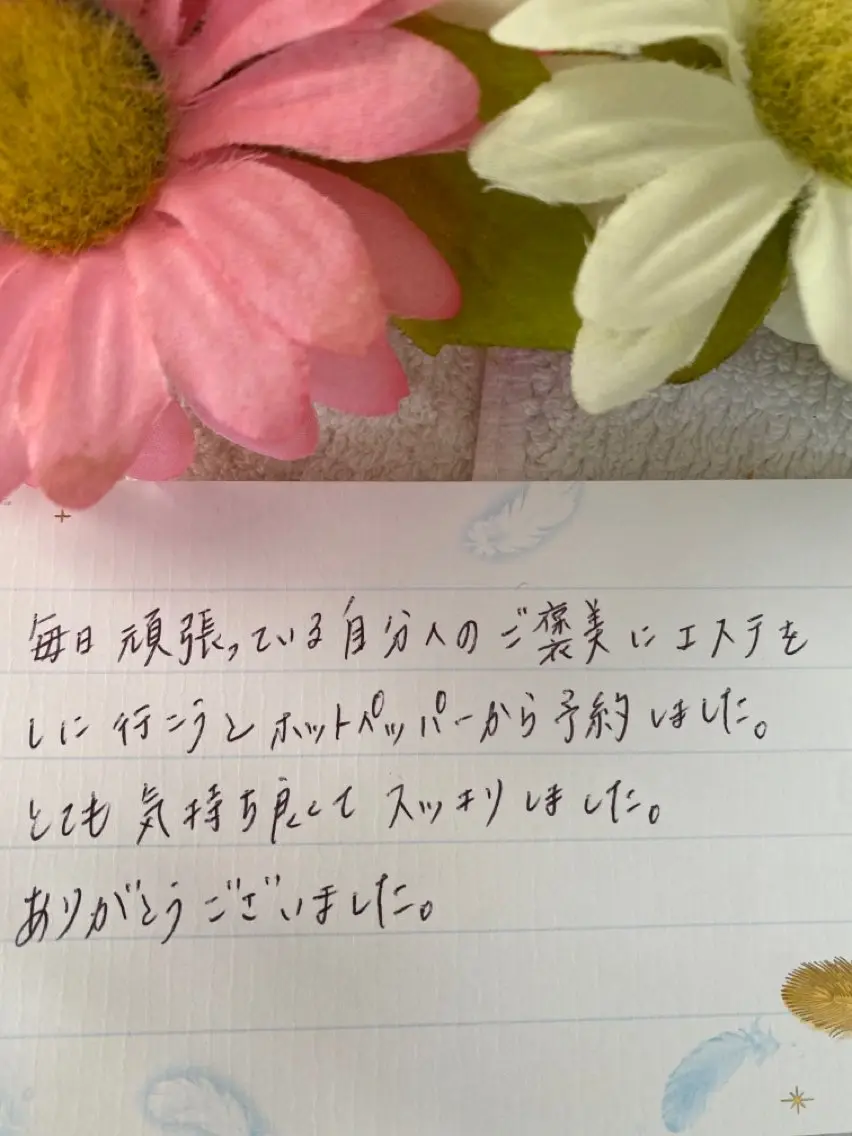 毎日頑張っている自分へのご褒美にエステを
しに行こうとホットペッパーから予約しました。
とても気持ち良くてスッキリしました。
ありがとうございました。